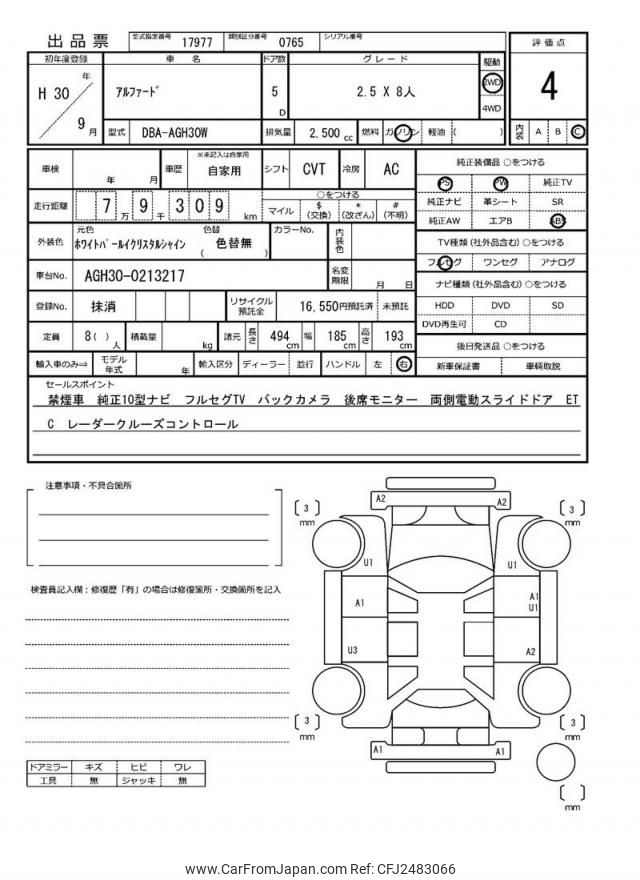 出品票 型式指定番号 17977 類別区分番号 0765 シリアル番号
初年度登録 車名 ドア数 グレード 駆動 評価点
H 30 年 9 月 アルファード 5 D 2.5 X 8人 2WD 4WD 4
型式 DBA-AGH30W 排気量 2,500 cc 燃料 ガソリン 軽油 ( ) 内装 A B C
車検 年 月 車歴 ※未記入は自家用 自家用 シフト CVT 冷房 AC
純正装備品 ○をつける
PS PW 純正TV
純正ナビ 革シート SR
純正AW エアB ABS
走行距離 7 万 9 千 3 0 9 km ○をつける
マイル $ (交換) * (改ざん) # (不明)
TV種類 (社外品含む) ○をつける
フルセグ ワンセグ アナログ
外装色 元色 ホワイトパールイクリスタルシャイン 色替 ( 色替無 ) カラーNo. 内装色
車台No. AGH30-0213217 名変期限 月 日
ナビ種類 (社外品含む) ○をつける
HDD DVD SD
DVD再生可 CD
登録No. 抹消 リサイクル預託金 16,550円預託済 未預託
定員 8( ) 人 積載量 kg 諸元 長さ 494 cm 幅 185 cm 高さ 193 cm
後日発送品 ○をつける
新車保証書 車輌取説
輸入車のみ⇒ モデル年式 年 輸入区分 ディーラー 並行 ハンドル 左 右
セールスポイント
禁煙車 純正10型ナビ フルセグTV バックカメラ 後席モニター 両側電動スライドドア ET
C レーダークルーズコントロール
注意事項・不具合箇所
検査員記入欄:修復歴「有」の場合は修復箇所・交換箇所を記入
A2 A2
3 mm 3 mm
U1 U1
A1 A1
U1
U3 A2
3 mm 3 mm
A1 A1
mm
ドアミラー キズ ヒビ ワレ
工具 無 ジャッキ 無
www.CarFromJapan.com Ref: CFJ2483066